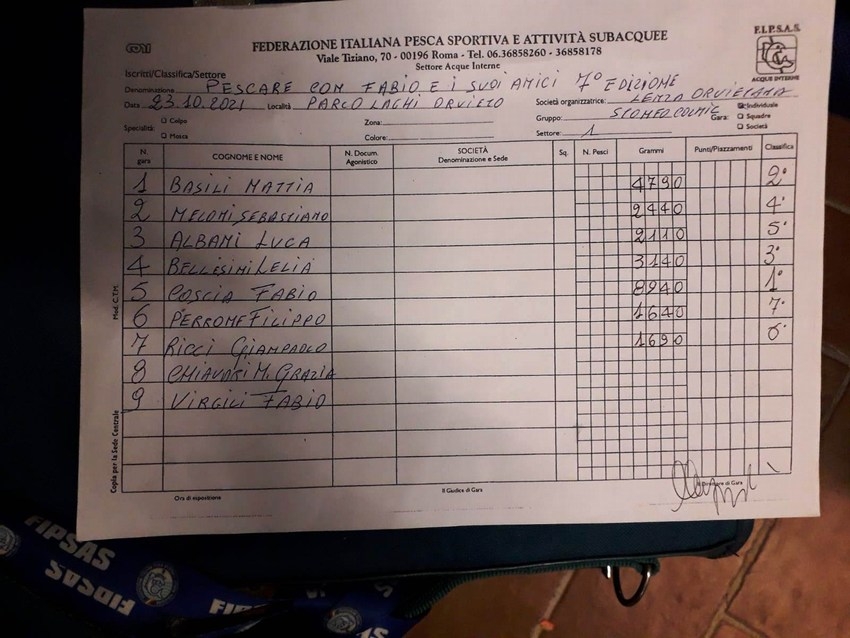 CONI
FEDERAZIONE ITALIANA PESCA SPORTIVA E ATTIVITÀ SUBACQUEE
Viale Tiziano, 70 - 00196 Roma - Tel. 06.36858260 - 36858178
Settore Acque Interne
F.I.P.S.A.S.
ACQUE INTERNE
Iscritti/Classifica/Settore
Denominazione PESCARE CON FABIO E I SUOI AMICI 7° EDIZIONE
Data 23.10.2021 Località PARCO LAGHI ORVIETO Società organizzatrice: LENZA ORVIETANA
Specialità: Colpo Mosca
Zona:
Colore:
Gruppo: Gara: Individuale
Squadre
Società
Settore: 1
N. gara COGNOME E NOME N. Docum. Agonistico SOCIETÀ Denominazione e Sede Sq. N. Pesci Grammi Punti/Piazzamenti Classifica
1 BASILI MATTIA 4790 2°
2 MELONI SEBASTIANO 2440 4°
3 ALBANI LUCA 2110 5°
4 BELLESINI LELIA 3140 3°
5 COSCIA FABIO 8940 1°
6 PERRONE FILIPPO 1640 7°
7 RICCI GIAMPAOLO 1690 6°
8 CHIAVARI M. GRAZIA
9 VIRGILI FABIO
Mod. C.T.M.
Copia per la Sede Centrale
Ora di esposizione Il Giudice di Gara Il Direttore di Gara
FIPSAS
FIPSAS
FIP
AS